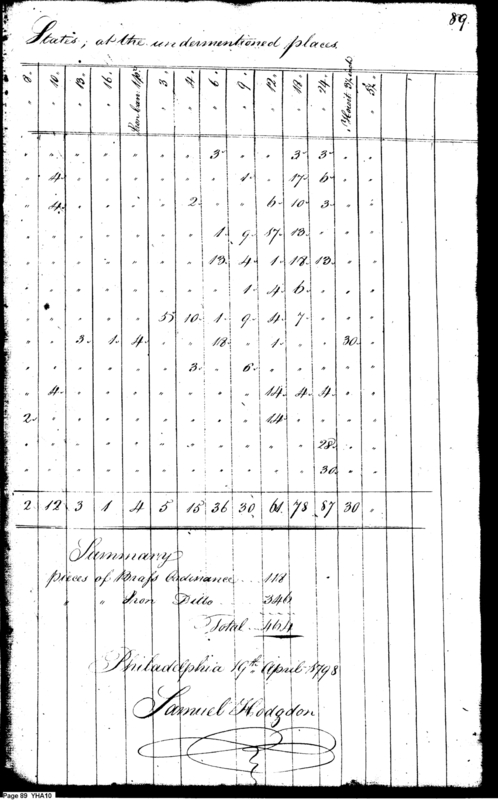 89
States, at the undermentioned places
8. 10. 13. 16. 3. 4. 6. 9. 12. 18. 24. 5½.
3 3 3
4 1 17 6
4 2 6 10 3
1 9 17 13
13 4 1 18 13
1 4 6
5 10 1 9 4 7
3 1 4 18 1 30
3 6
4 14 4 4
2 14
28
30
2 12 3 1 4 5 15 36 30 61 78 87 30
Summary
pieces of Brass Ordinance 118
" " Iron Ditto 346
Total 464
Philadelphia 19th April 1798
Samuel Hodgdon
Page 89 YHA10